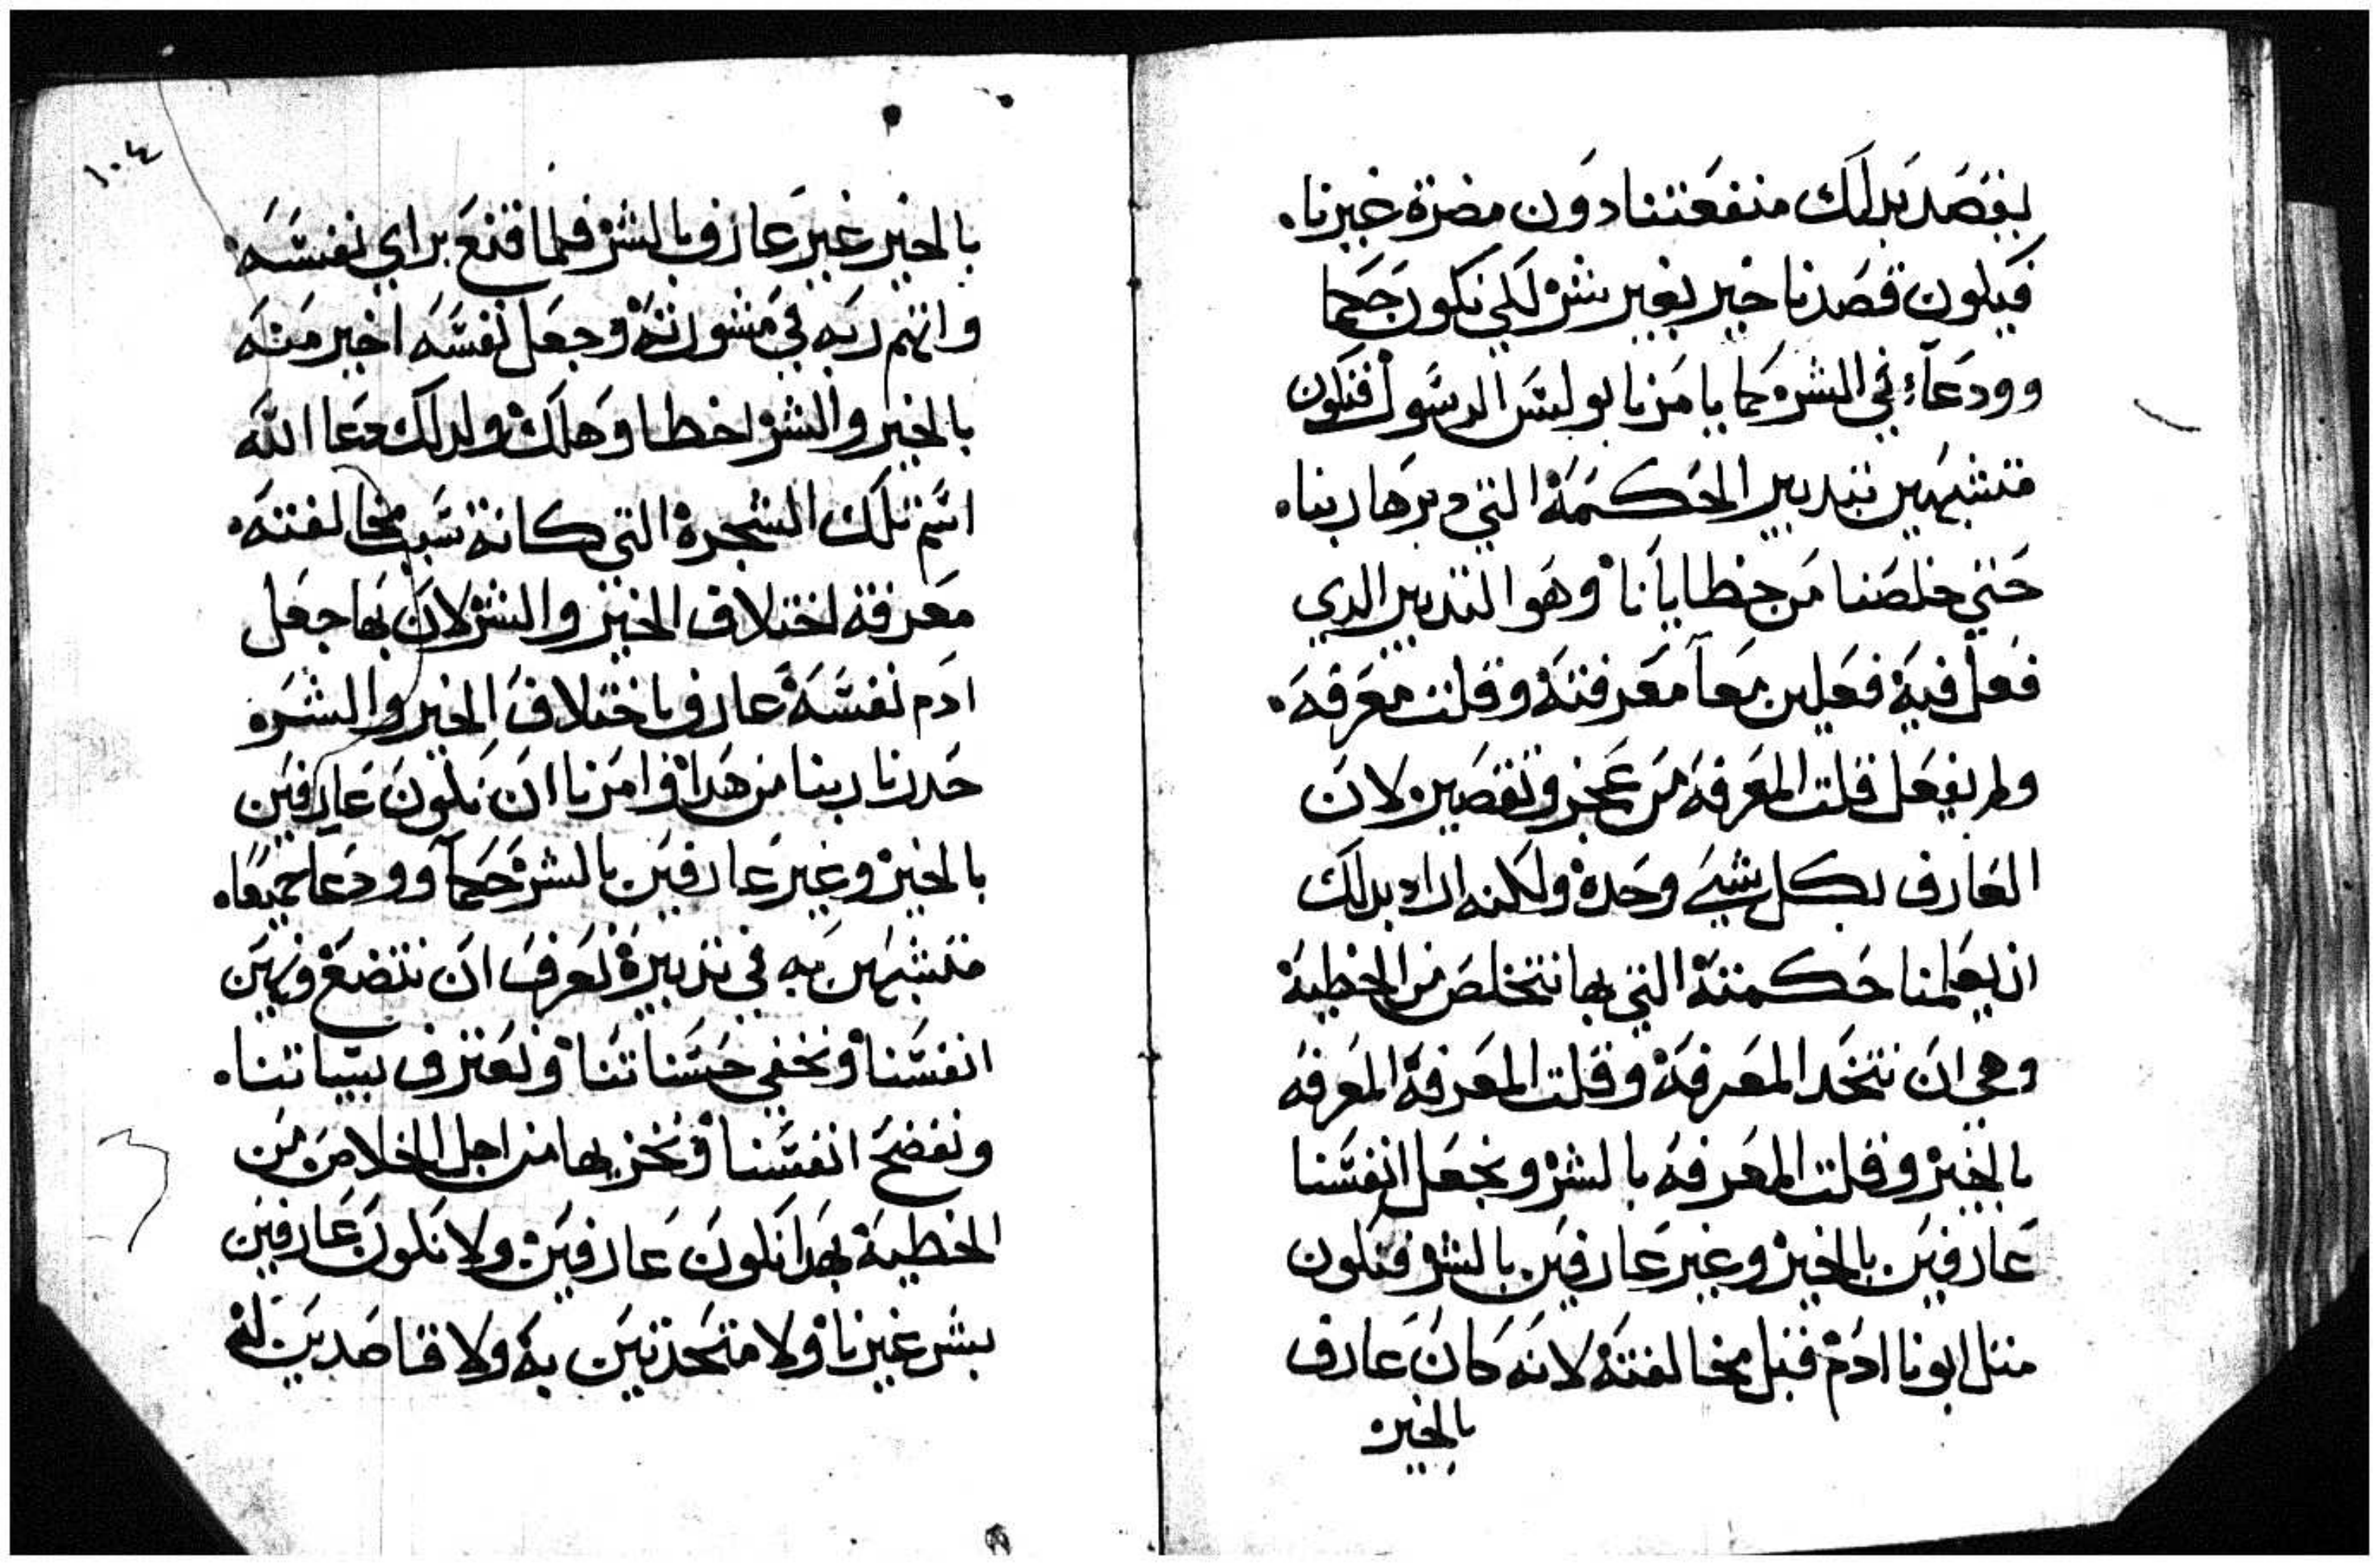 بقصد بدلك منفعتنا دون مضرة غيرنا.
فيكون قصدنا خير بغير شر لكي نكون حكما
وودعاء في الشر كما يامرنا بولس الرسول فنكون
متشبهين بتدبير الحكمة التي دبرها ربنا.
حتي خلصنا من خطايانا وهو التدبير الدي
فعل فيه فعلين معاً معرفته وقلت معرفه.
ولم يفعل قلت المعرفه من عجز وتقصير لان
العارف بكل شي وحده ولكنه اراد بدلك
ان يعلمنا حكمته التي بها نتخلص من الخطية
وهي ان نتخد المعرفة وقلت المعرفة المعرفه
بالخير وقلت المعرفه بالشر ونجعل انفسنا
عارفين بالخير وغير عارفين بالشر فنكون
متل ابونا ادم قبل مخالفته لانه كان عارف
بالخير
١٠٤
بالخير غير عارف بالشر فلما قنع براي نفسه
واتهم ربه في مشورته وجعل نفسه اخبر منه
بالخير والشر اخطا وهلك ولدلك دعا الله
اسم تلك الشجرة التي كانة سبب مخالفته.
معرفة اختلاف الخير والشر لان بها جعل
ادم نفسه عارف باختلاف الخير والشر
حدرنا ربنا من هدا وامرنا ان نكون عارفين
بالخير وغير عارفين بالشر حكماً وودعاً جميعاً.
متشبهين به في تدبيره نعرف ان نتضع ونهين
انفسنا ونخفي حسناتنا ونعترف بسياتنا.
ونفضح انفسنا ونخزيها من اجل الخلاص من
الخطية بهدا نكون عارفين ولا نكون عارفين
بشر غيرنا ولا متحدتين به ولا قاصدين له